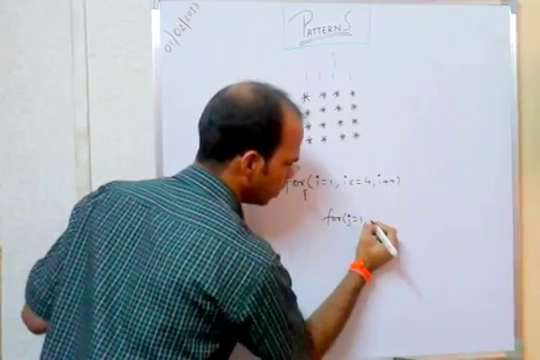 01/02/2017
PATTERNS
1
1 1 1 1
* * * *
* * * *
* * * *
* * * *
for(i=1, i<=4, i++)
{
for(j=1,